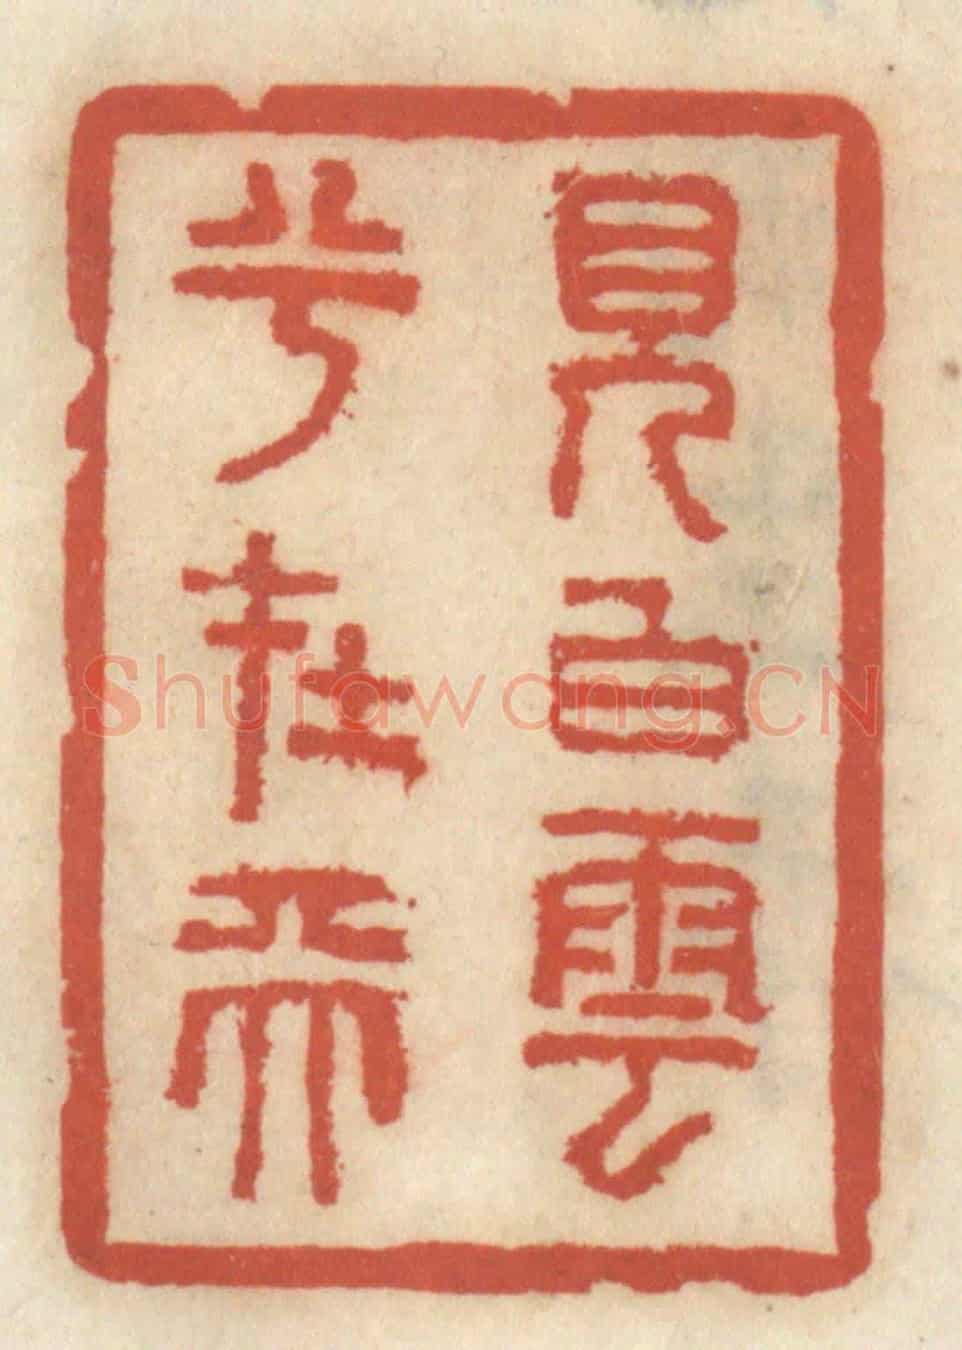 見白雲
兮在天
Shufawang.CN